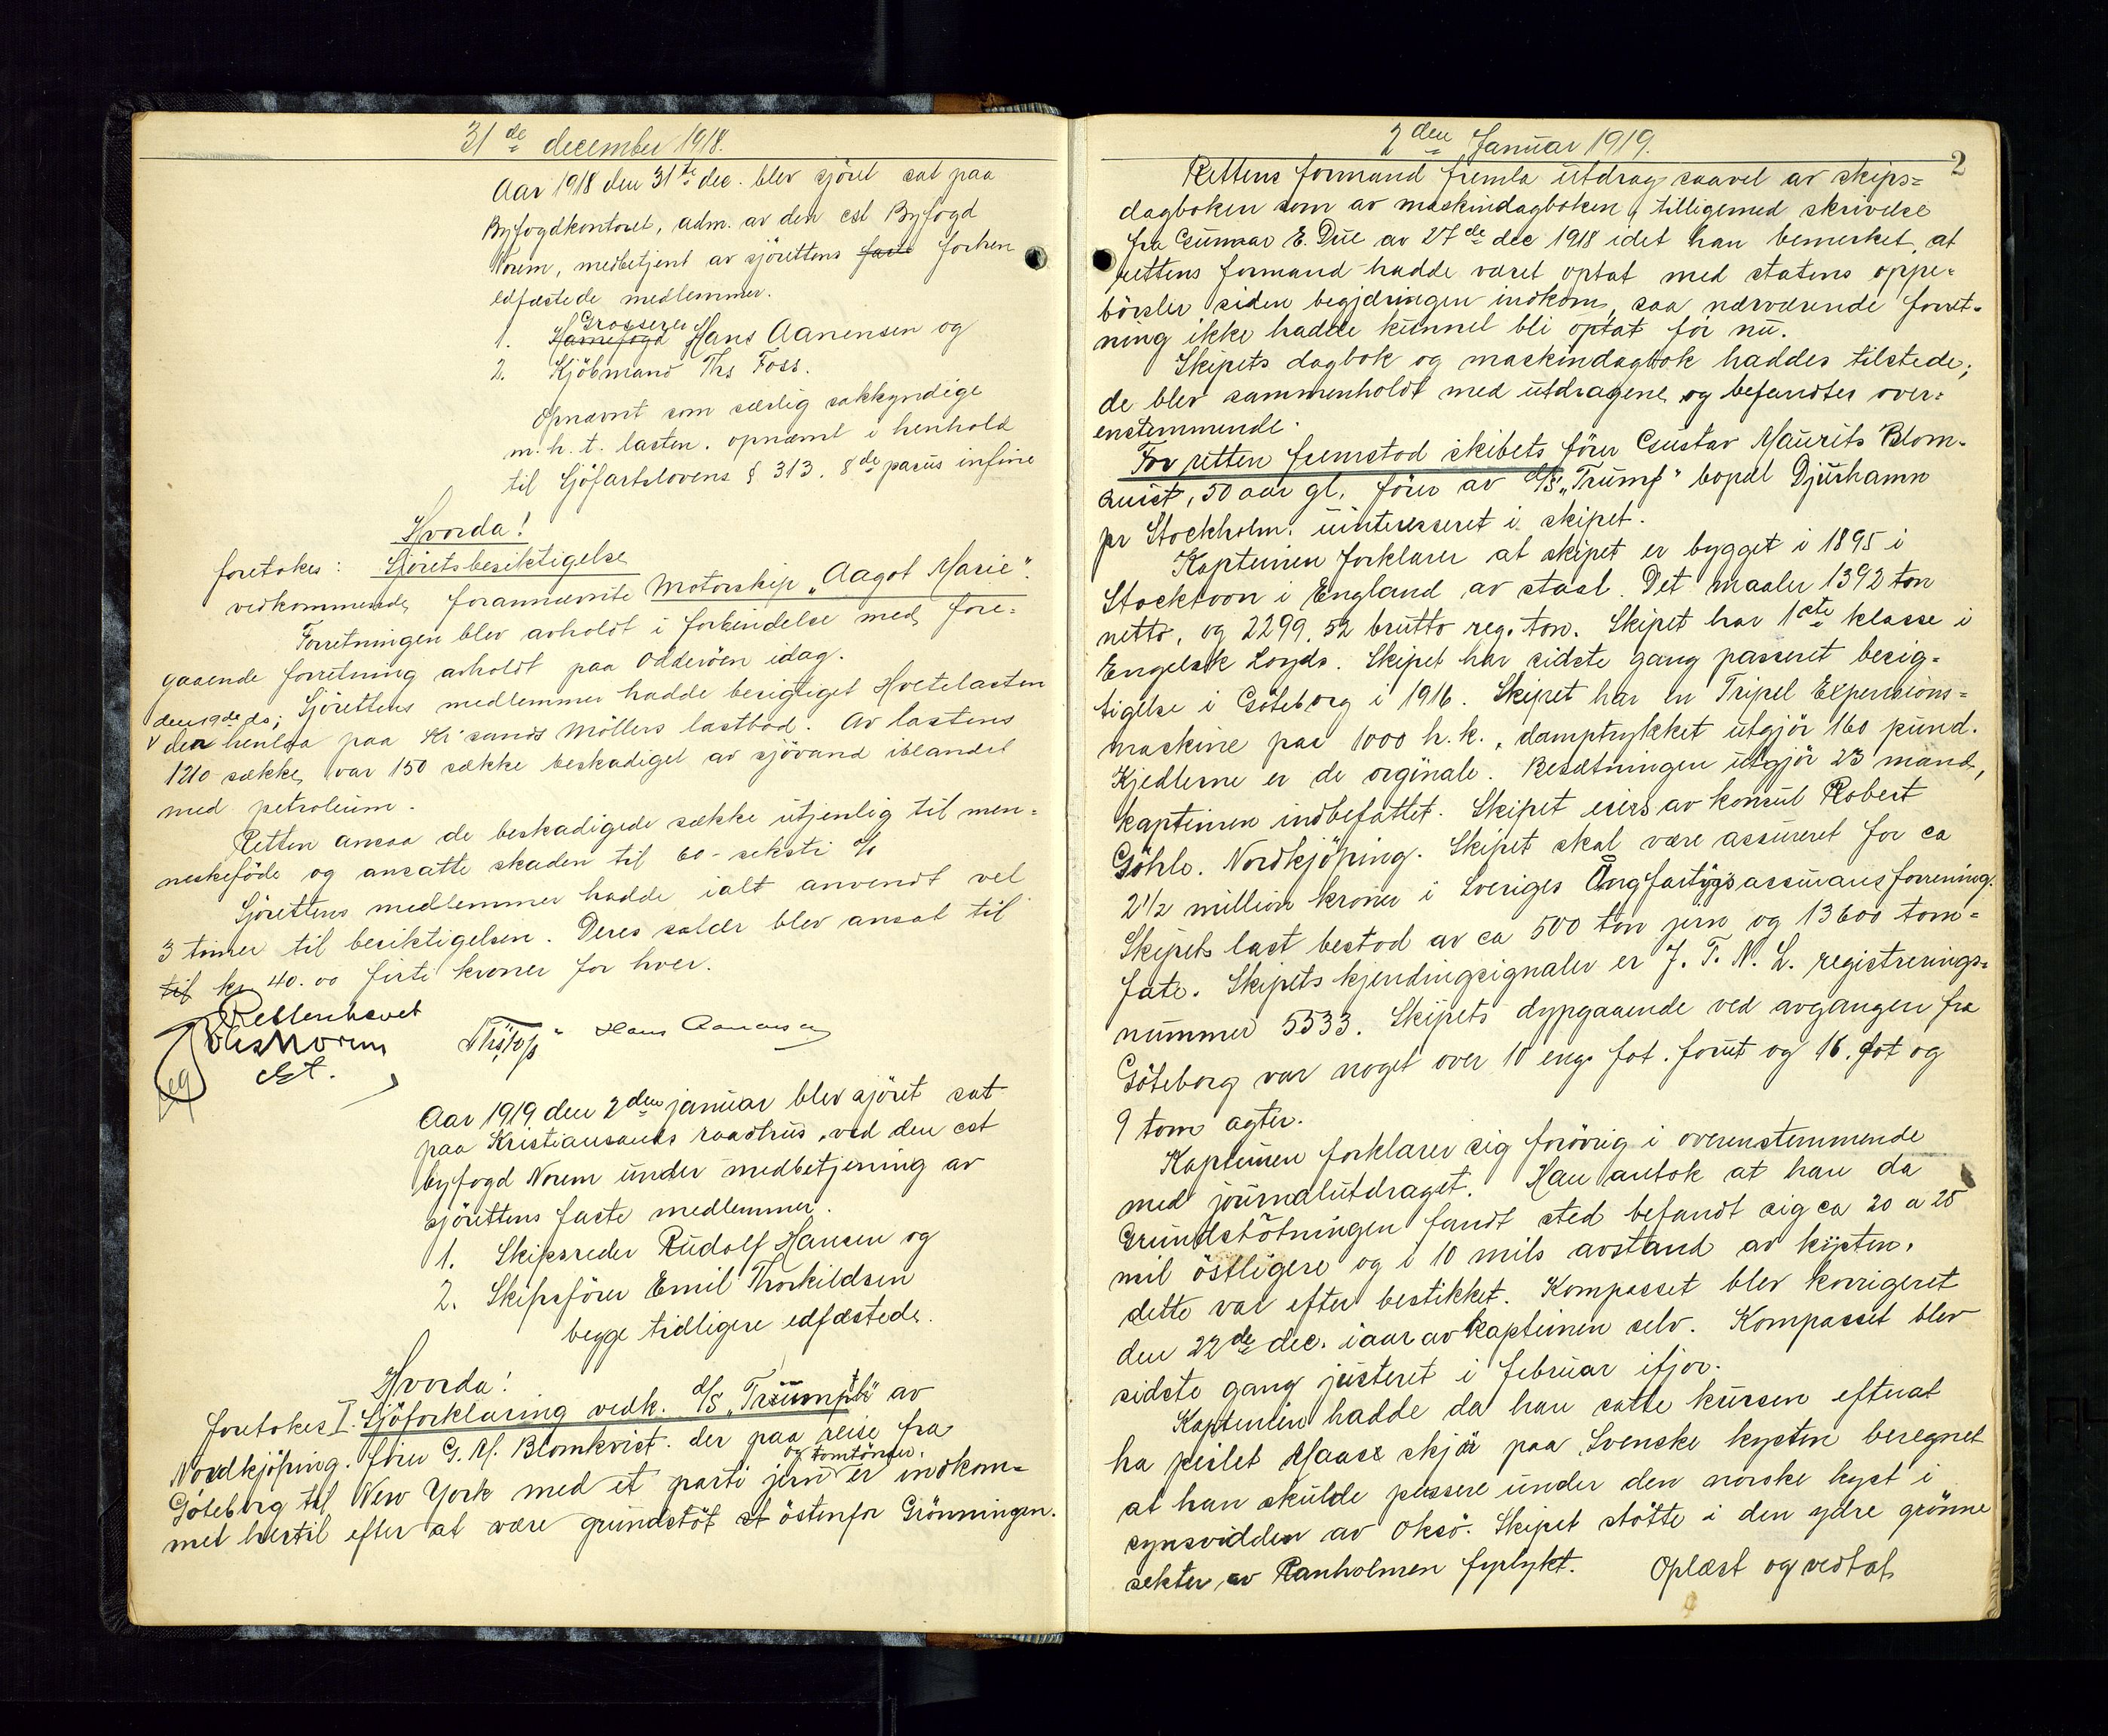 31de december 1918.
Aar 1918 den 31te dec. blev sjöret sat paa
Byfogdkontoret, adm. av den cst Byfogd
Norem, medbetjent av sjörettens faste forhen
edfæstede medlemmer.
Grosserer
1. Havnefogd Hans Aanensen og
2. Kjöbmand Ths Foss.
Opnævnt som særlig sakkyndige
m.h.t. lasten. opnævnt i henhold
til Sjöfartslovens § 313. 8de passus infine
Hvorda!
foretokes: Sjöretsbesiktigelse
vedkommende forannævnte Motorskip „Aagot Marie".
Forretningen blev avholdt i forbindelse med fore-
gaaende forretning avholdt paa Odderöen idag.
Sjörettens medlemmer hadde besigtiget Hvetelasten
den 19de ds;
der henlaa paa Kr.sands Möllers lastbod. Av lastens
1210 sække var 150 sække beskadiget av sjövand iblandet
med petroleum.
Retten ansaa de beskadigede sække utjenlig til men-
neskeföde og ansatte skaden til 60 - seksti %
Sjörettens medlemmer hadde ialt anvendt vel
3 timer til besiktigelsen. Deres salær blev ansat til
til kr 40.00 firti kroner for hver.
Retten hævet
Norem
cst.
Ths Foss Hans Aanensen
Aar 1919 den 2den januar blev sjöret sat
paa Kristiansands raadhus, ved den cst
byfogd Norem under medbetjening av
sjörettens faste medlemmer.
1. Skipsreder Rudolf Hansen og
2. Skipsförer Emil Thorkildsen
begge tidligere edfæstede.
Hvorda!
foretokes I. Sjöforklaring vedk. d/s „Triumph" av
Nordkjöping. förer G. M. Blomkvist. der paa reise fra
og tomtönder.
Göteborg til New York med et parti jern er indkom-
met hertil efter at være grundstöt st östenfor Grönningen.
2den Januar 1919.
2
Rettens formand fremla utdrag saavel av skips-
dagboken som av maskindagboken, tilligemed skrivelse
fra Gunnar E. Due av 27de dec 1918 idet han bemerket, at
rettens formand hadde været optat med statens oppe-
börsler siden begjæringen indkom, saa nærværende forret-
ning ikke hadde kunnet bli optat för nu.
Skipets dagbok og maskindagbok haddes tilstede;
de blev sammenholdt med utdragene og befandtes over-
enstemmende.
For retten fremstod skibets förer Gustav Maurits Blom-
quist, 50 aar gl. förer av d/s „Trumf" bopæl Djurhamn
pr Stockholm. uinteresseret i skipet.
Kapteinen forklarer at skipet er bygget i 1895 i
Stocktoon i England av staal. Det maaler 1392 ton
netto, og 2299.52 brutto reg. ton. Skipet har 1ste klasse i
Engelsk Loyds. Skipet har sidste gang passeret besig-
tigelse i Göteborg i 1916. Skipet har en Tripel Expensions-
maskine paa 1000 h.k., damptrykket utgjör 160 pund.
Kjedlerne er de orginale. Besætningen utgjör 23 mand,
kapteinen indbefattet. Skipet eies av konsul Robert
Göhle. Nordkjöping. Skipet skal være assureret for ca
2 1/2 million kroner i Sveriges Ångfartygsassuransforrening.
Skipets last bestod av ca 500 ton jern og 13600 tom-
fate. Skipets kjendingssignaler er J. T. N. L. registrerings-
nummer 5533. Skipets dypgaaende ved avgangen fra
Göteborg var noget over 10 eng. fot. forut og 16. fot og
9 tom agter.
Kapteinen forklarer sig forövrig i overenstemmende
med journalutdraget. Han antok at han da
Grundstötningen fandt sted befandt sig ca 20 a 25
mil östligere og i 10 mils avstand av kysten.
dette var efter bestikket. Kompasset blev korrigeret
den 22de dec. iaar av kapteinen selv. Kompasset blev
sidste gang justeret i februar ifjor.
Kapteinen hadde da han satte kursen efterat
ha peilet Maase skjär paa Svenske kysten beregnet
at han skulde passere under den norske kyst i
synsvidden av Oksö. Skipet stötte i den ydre grönne
sekter av Ranholmen fyrlykt. Oplæst og vedtat